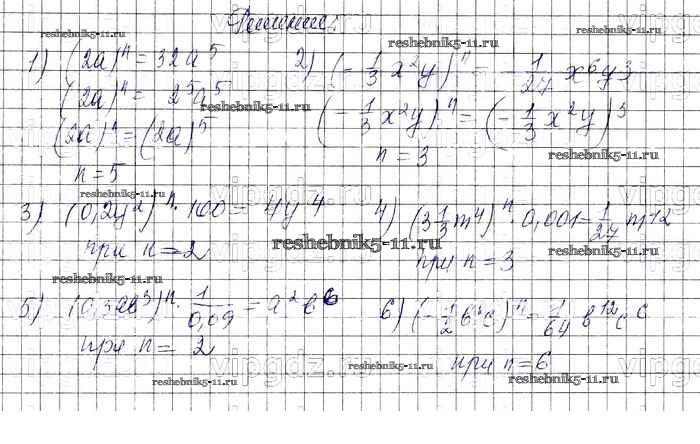 Решение:
1) (2a)ⁿ = 32a⁵
(2a)ⁿ = 2⁵a⁵
(2a)ⁿ = (2a)⁵
n = 5
2) (-1/3 x²y)ⁿ = -1/27 x⁶y³
(-1/3 x²y)ⁿ = (-1/3 x²y)³
n = 3
3) (0,2y²)ⁿ · 100 = 4y⁴
при n = 2
4) (3 1/3 m⁴)ⁿ · 0,001 = 1/27 m¹²
при n = 3
5) (0,3ab³)ⁿ · 1/0,09 = a²b⁶
при n = 2
6) (-1/2 b²c)ⁿ = 1/64 b¹²c⁶
при n = 6
reshebnik5-11.ru
reshebnik5-11.ru
reshebnik5-11.ru
reshebnik5-11.ru
reshebnik5-11.ru
reshebnik5-11.ru
reshebnik5-11.ru
reshebnik5-11.ru
reshebnik5-11.ru
reshebnik5-11.ru
reshebnik5-11.ru
vipgdz.ru
vipgdz.ru
vipgdz.ru